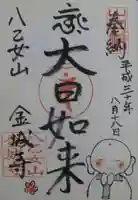 奉納
平成三十年
八月十八日
大日如来
八乙女山
金城寺